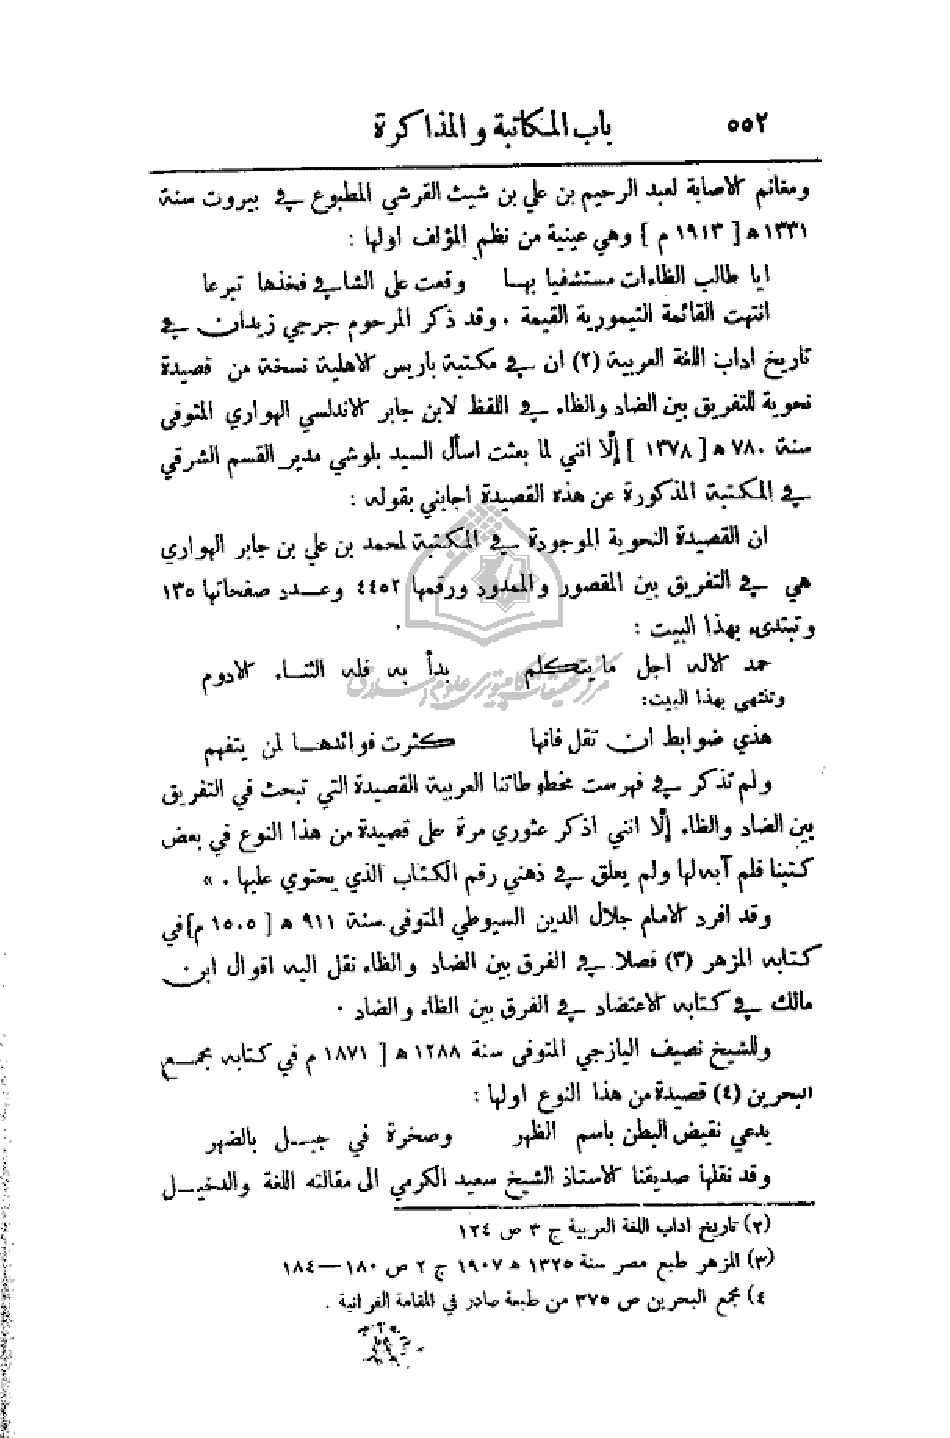 ٥٥٢ باب المكاتبة والمذاكرة
ومغانم الاصابة لعبد الرحيم بن علي بن شيث القرشي المطبوع في بيروت سنة
١٣٣١ ه [ ١٩١٣ م ] وهي عينية من نظم المؤلف اولها :
ايا طالب الظاءات مستشفيا بها وقعت على الشافي فخذها تبرعا
انتهت القائمة التيمورية القيمة . وقد ذكر المرحوم جرجي زيدان في
تاريخ اداب اللغة العربية (٢) ان في مكتبة باريس الاهلية نسخة من قصيدة
نحوية للتفريق بين الضاد والظاء في اللفظ لابن جابر الاندلسي الهواري المتوفى
سنة ٧٨٠ ه [ ١٣٧٨ ] إلّا انني لما بعثت اسأل السيد بلوشي مدير القسم الشرقي
في المكتبة المذكورة عن هذه القصيدة اجابني بقوله :
ان القصيدة النحوية الموجودة في المكتبة لمحمد بن علي بن جابر الهواري
هي في التفريق بين المقصور والممدود ورقمها ٤٤٥٢ وعدد صفحاتها ١٣٥
وتبتدىء بهذا البيت :
حمد الاله اجل ما يتكلم بدأ به فله الثناء الادوم
وتنتهي بهذا البيت:
هذي ضوابط ان تقل فانها كثرت فوائدها لمن يتفهم
ولم تذكر في فهرست مخطوطاتنا العربية القصيدة التي تبحث في التفريق
بين الضاد والظاء إلّا انني اذكر عثوري مرة على قصيدة من هذا النوع في بعض
كتبنا فلم آبه لها ولم يعلق في ذهني رقم الكتاب الذي يحتوي عليها . »
وقد افرد الامام جلال الدين السيوطي المتوفى سنة ٩١١ ه [ ١٥٠٥ م] في
كتابه المزهر (٣) فصلا في الفرق بين الضاد والظاء نقل اليه اقوال ابن
مالك في كتابه الاعتضاد في الفرق بين الظاء والضاد .
وللشيخ نصيف اليازجي المتوفى سنة ١٢٨٨ ه [ ١٨٧١ م في كتابه مجمع
البحرين (٤) قصيدة من هذا النوع اولها :
يدعي نقيض البطن باسم الظهر وصخرة في جبل بالضهر
وقد نقلها صديقنا الاستاذ الشيخ سعيد الكرمي الى مقالته اللغة والدخيل
(٢) تاريخ اداب اللغة العربية ج ٣ ص ١٢٤
(٣) المزهر طبع مصر سنة ١٣٢٥ ه ١٩٠٧ ج ٢ ص ١٨٠—١٨٤
٤) مجمع البحرين ص ٣٧٥ من طبعة صادر في المقامة الفراتية .